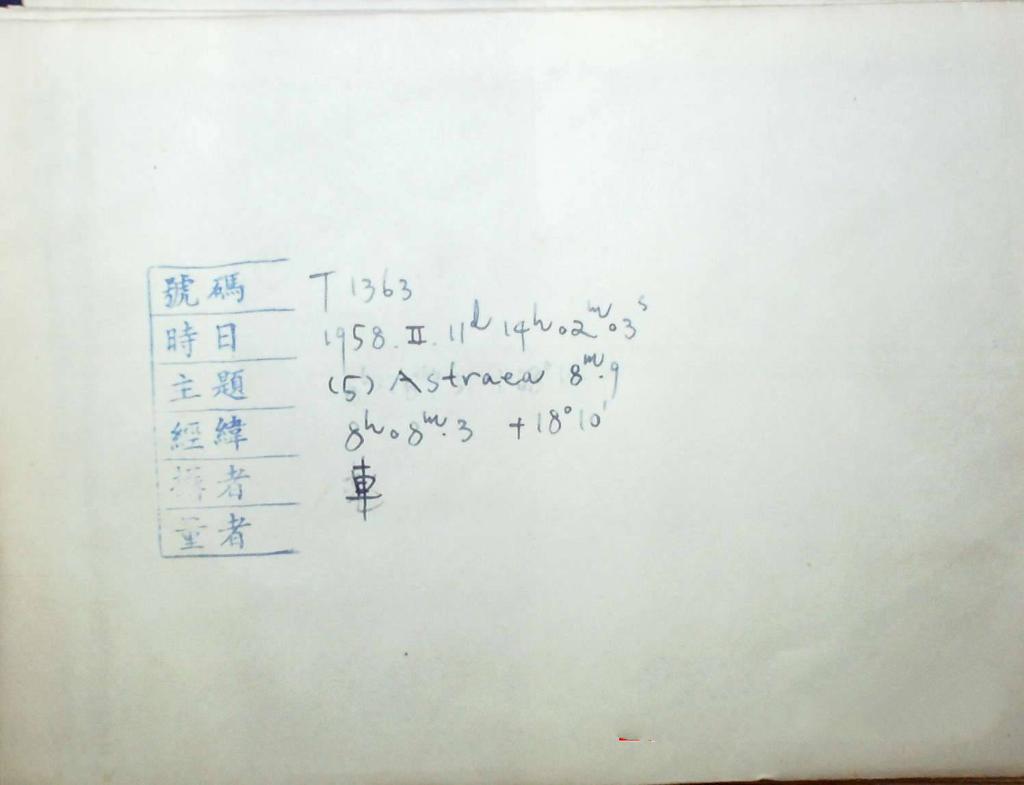 號碼 T 1363
時日 1958. II. 11d 14h 02m 03s
主題 (5) Astraea 8m.9
經緯 8h 08m.3 +18°10'
攝者 車
量者